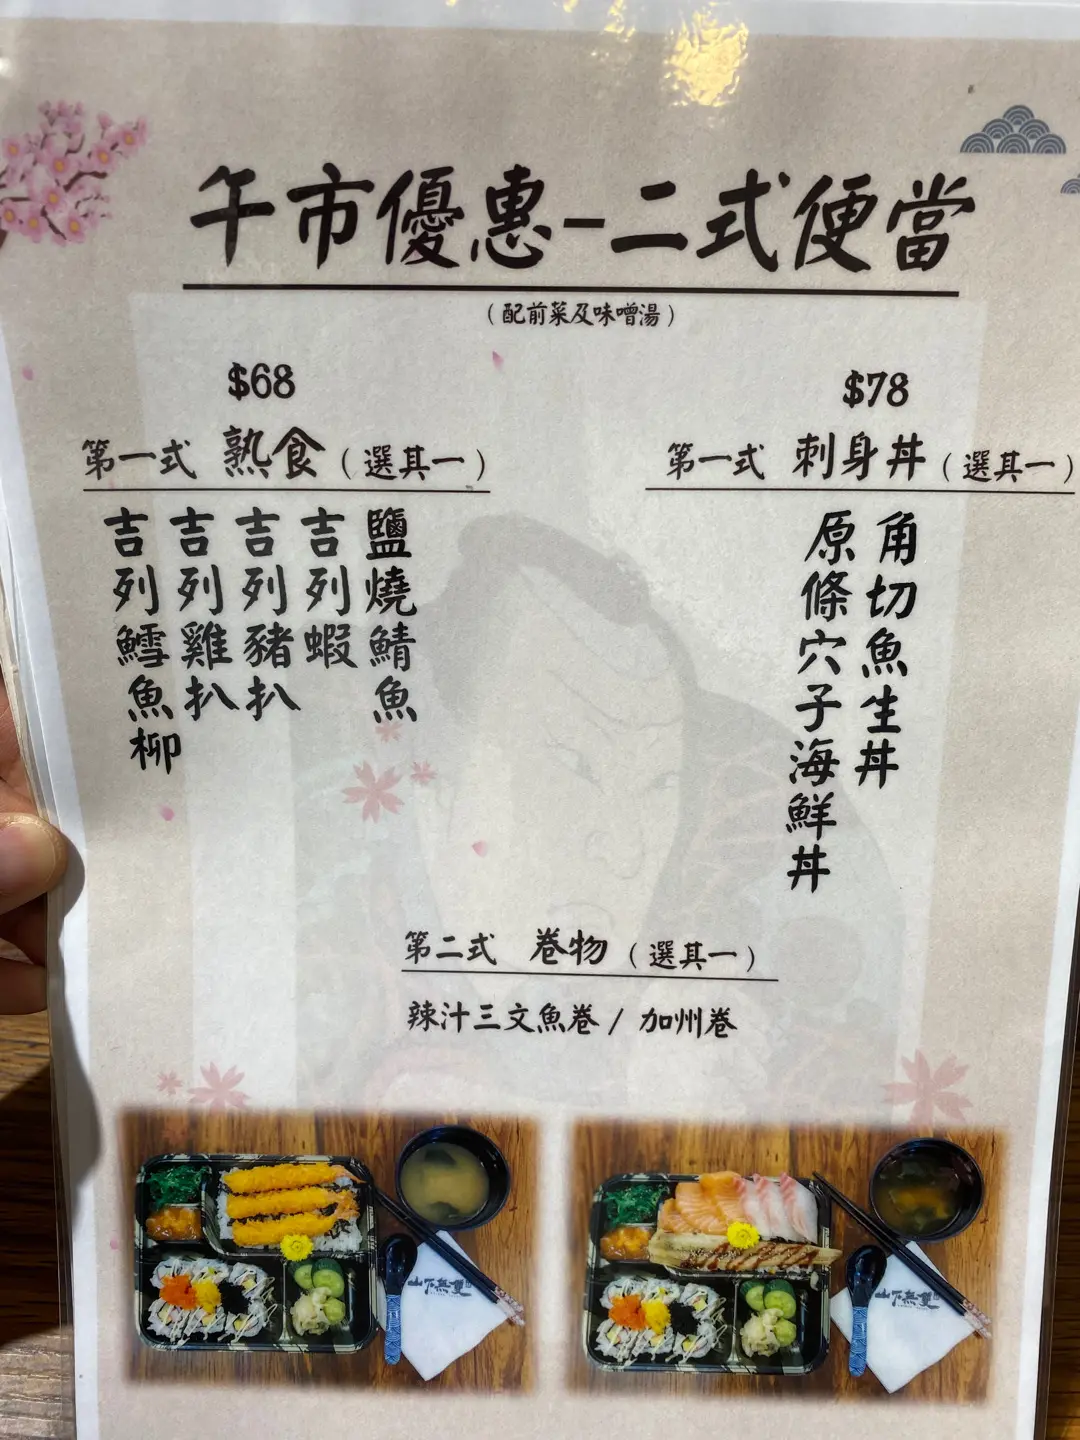 午市優惠-二式便當
(配前菜及味噌湯)
$68
第一式 熟食 (選其一)
鹽燒鯖魚
吉列蝦
吉列豬扒
吉列雞扒
吉列鱈魚柳
$78
第一式 刺身丼 (選其一)
角切魚生丼
原條穴子海鮮丼
第二式 卷物 (選其一)
辣汁三文魚卷 / 加州卷
山下無雙
山下無雙